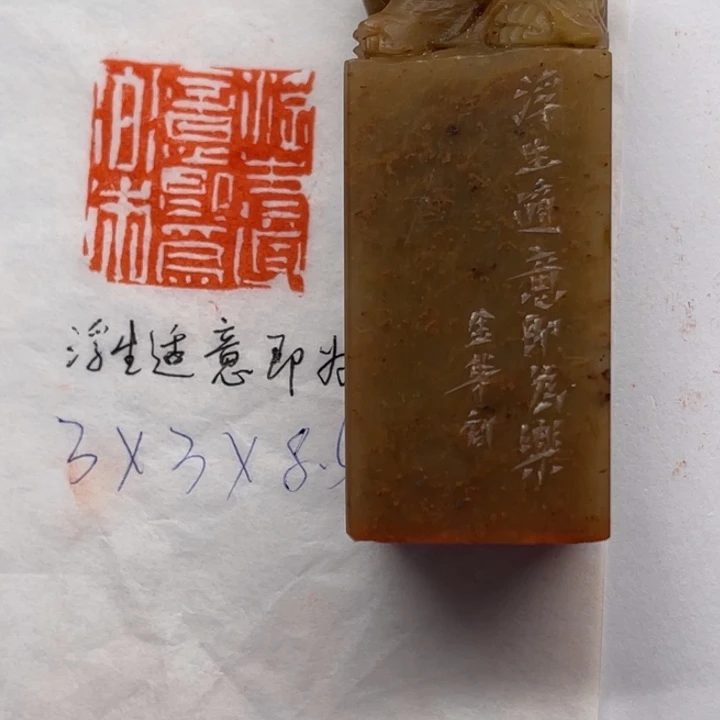 浮生適
意即為
樂
浮生适意即为
3X3X8.5
浮生適意即為樂
金華